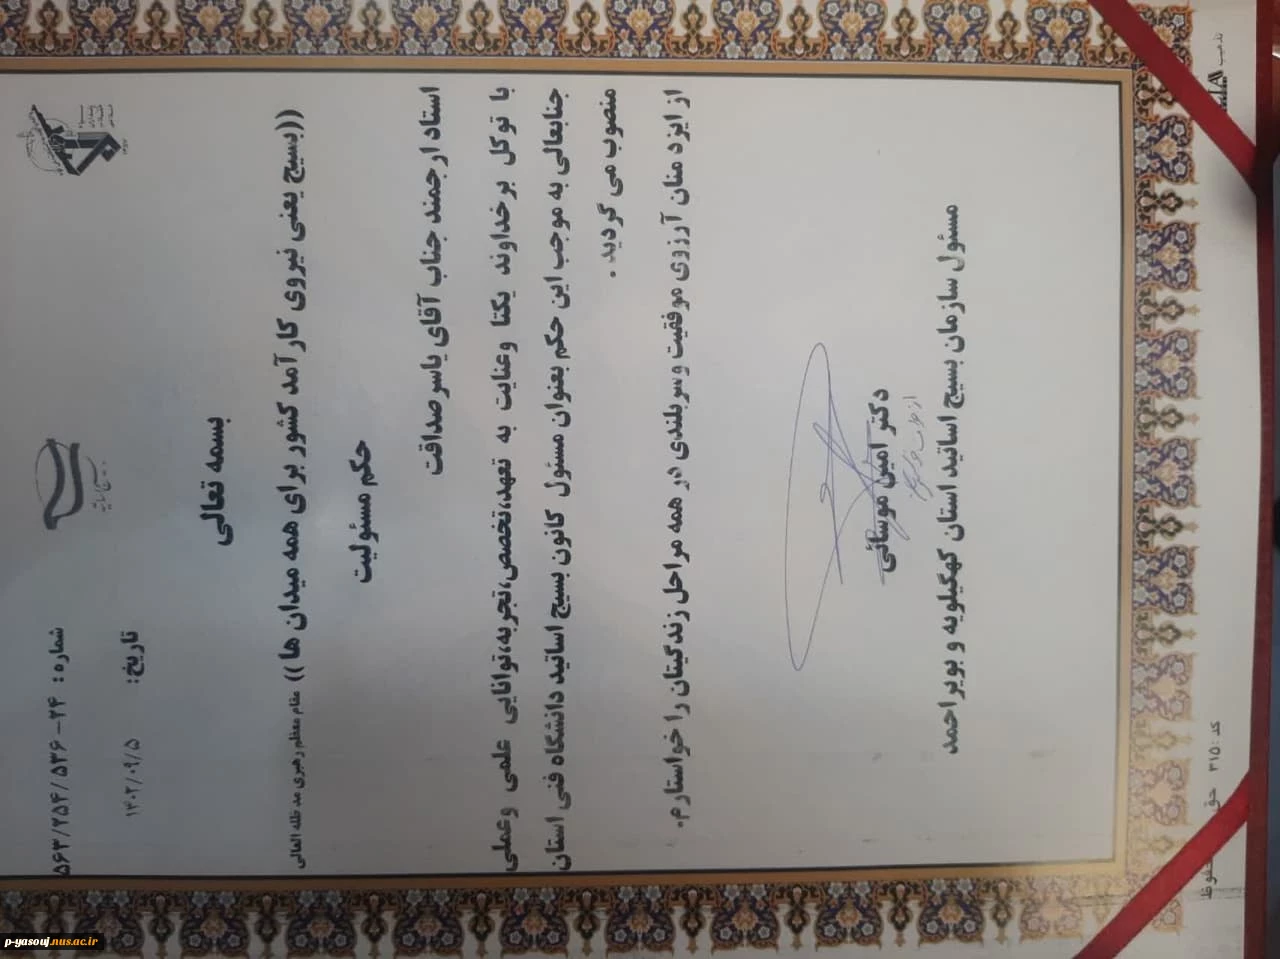 شماره: ۵۶۳/۲۵۴/۵۳۶-۲۴
تاریخ: ۱۴۰۲/۰۹/۵
بسمه تعالی
((بسیج یعنی نیروی کارآمد کشور برای همه میدان ها)) مقام معظم رهبری مد ظله العالی
حکم مسئولیت
استاد ارجمند جناب آقای یاسر صداقت
با توکل برخداوند یکتا وعنایت به تعهد،تخصص،تجربه،توانایی علمی وعملی
جنابعالی به موجب این حکم بعنوان مسئول کانون بسیج اساتید دانشگاه فنی استان
منصوب می گردید .
از ایزد منان آرزوی موفقیت وسربلندی در همه مراحل زندگیتان را خواستارم.
دکتر امین موسائی
مسئول سازمان بسیج اساتید استان کهگیلویه و بویراحمد
کد: ۳۱۵ حق
p-yasouj.nus.ac.ir